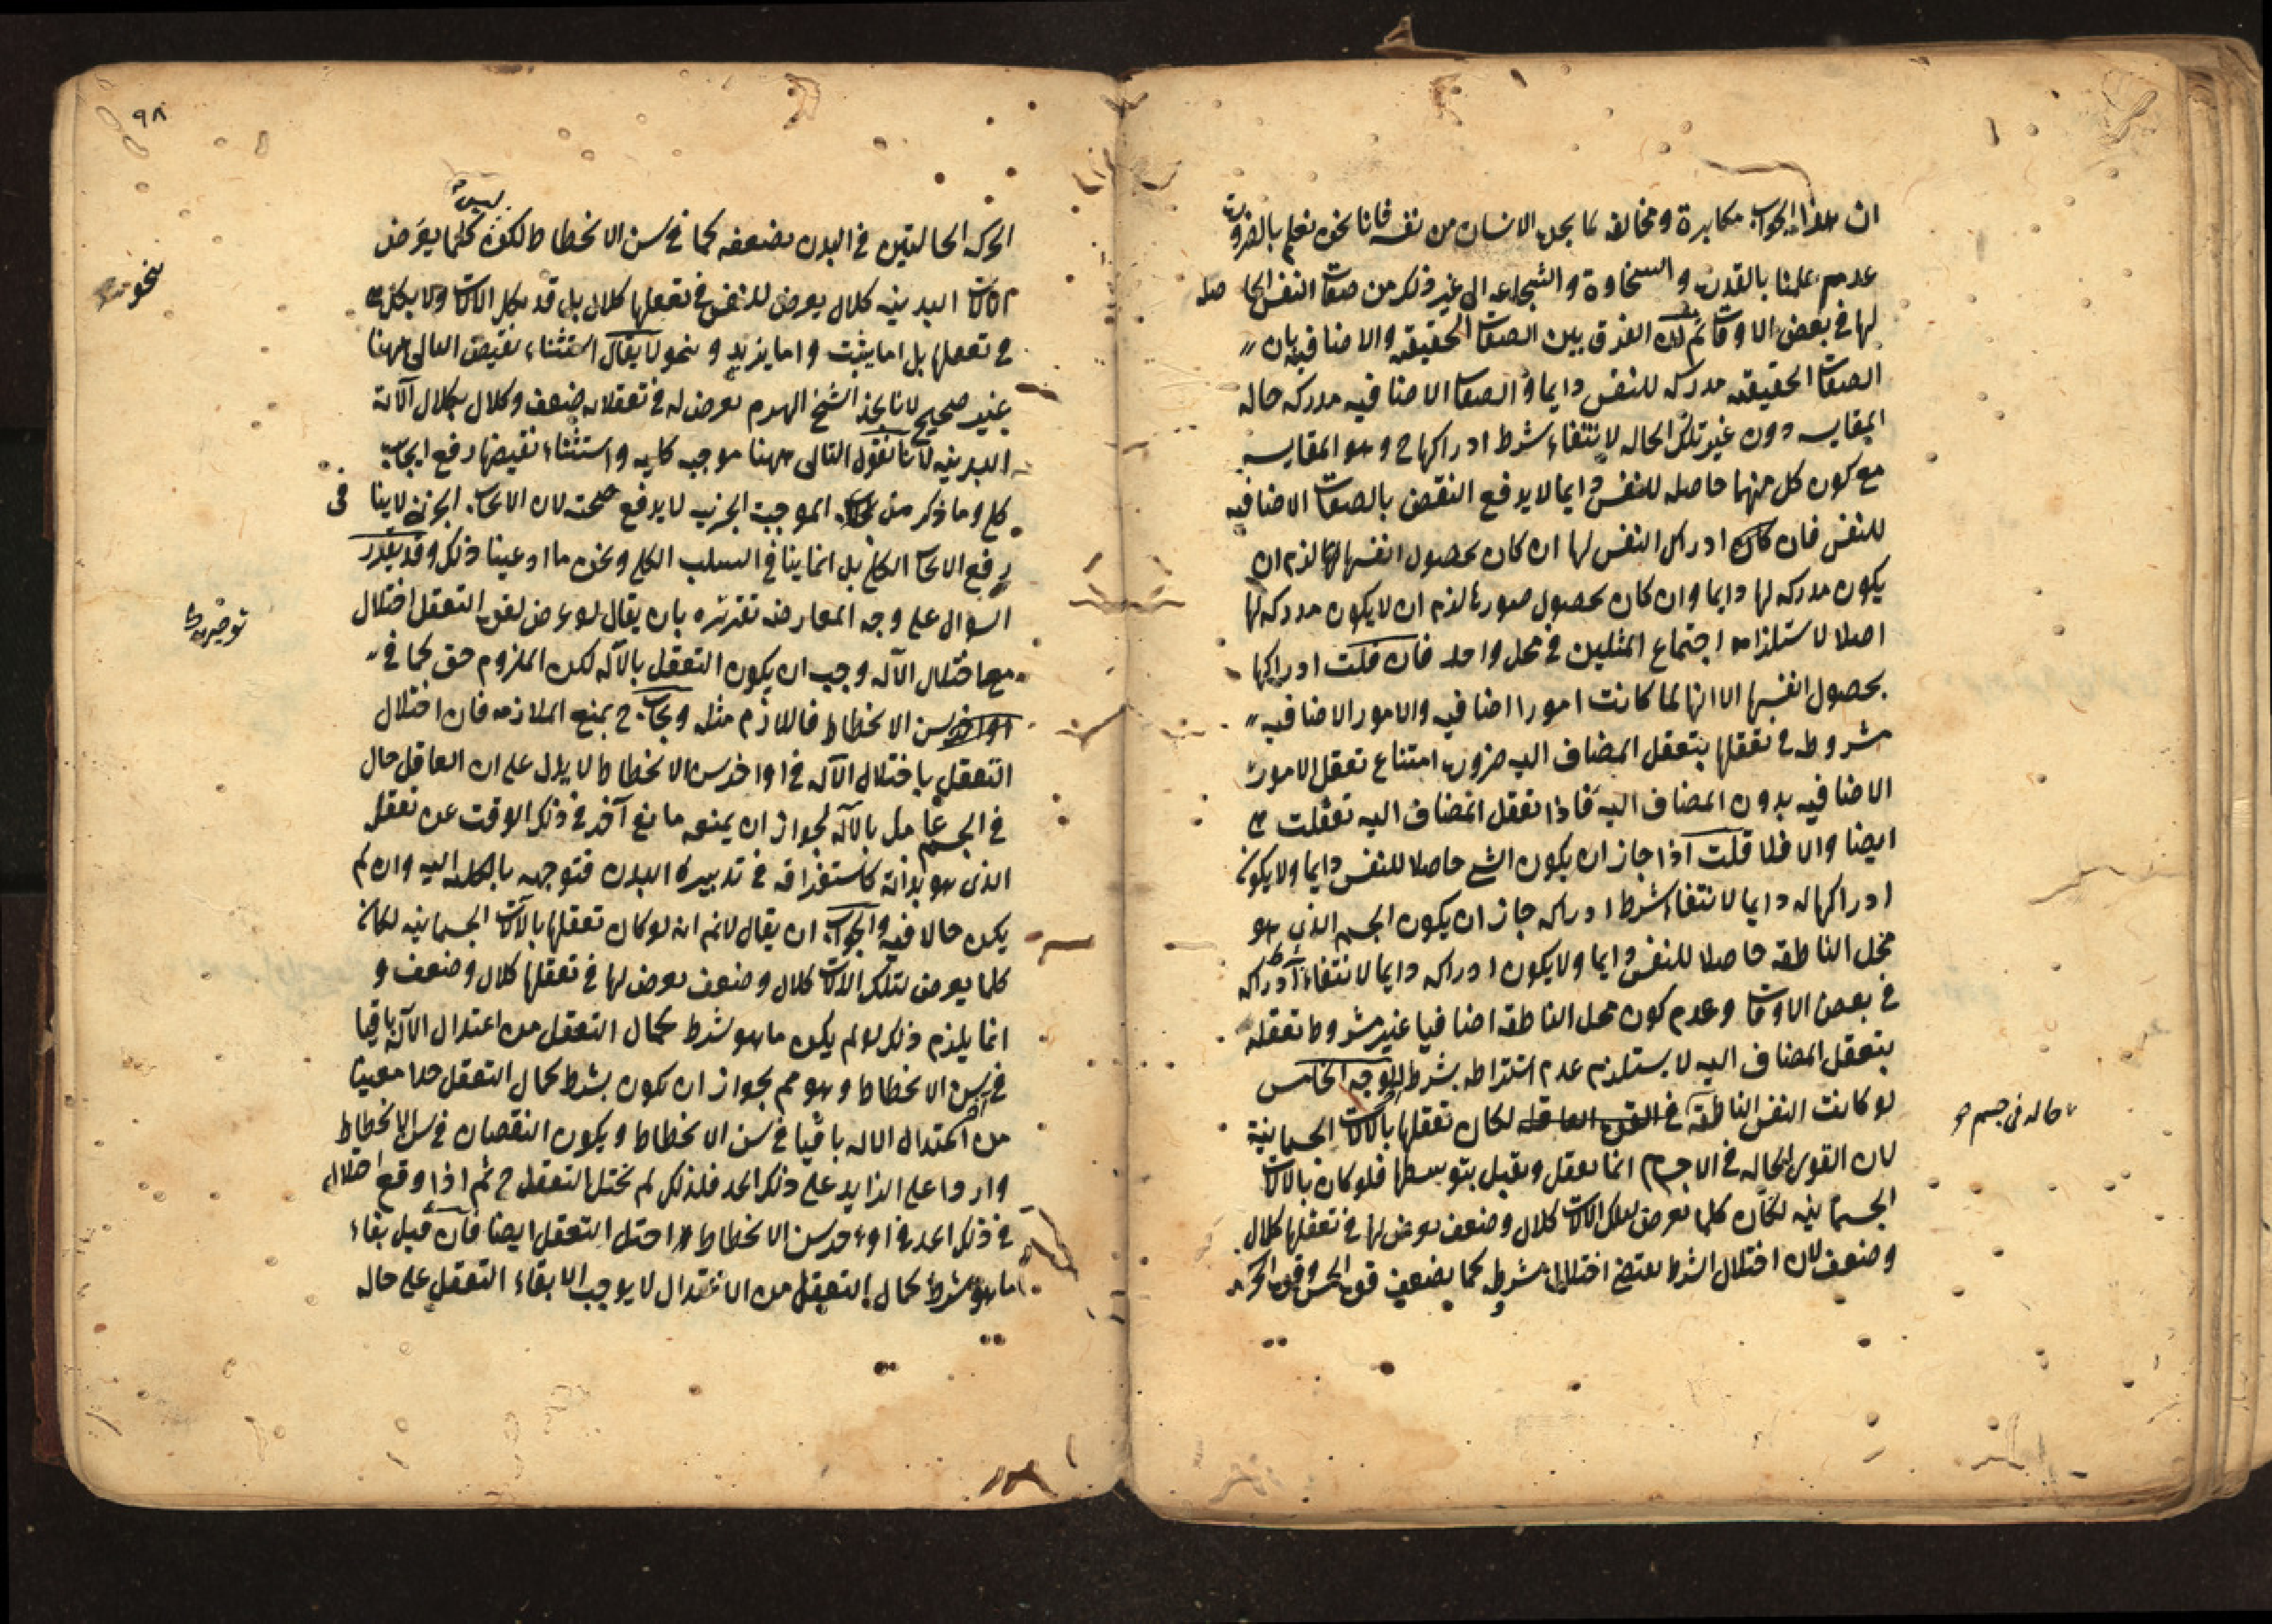 ان هذا الجواب مكابرة ومخالفة لما يجده الانسان من نفسه فانا نحن نعلم بالضرورة
عدم علمنا بالقدرة والسخاوة والشجاعة الى غير ذلك من صفات النفس الحاصله
لها في بعض الاوقات ثم الفرق بين الصفات الحقيقيه والاضافيه بان
الصفات الحقيقيه مدركه للنفس دايما والصفات الاضافيه مدركه حاله
المقايسه دون غير تلك الحاله لانتفاء شرط ادراكها ح وهو المقايسه
مع كون كل منهما حاصله للنفس دايما لا يدفع النقض بالصفات الاضافيه
للنفس فان كان ادراك النفس لها ان كان بحصول انفسها لها لزم ان
يكون مدركه لها دايما وان كان بحصول صورها لزم ان لا يكون مدركه لها
اصلا لاستلزامه اجتماع المثلين في محل واحد فان قلت ادراكها
بحصول انفسها الا انها لما كانت امورا اضافيه والامور الاضافيه
مشروطه في تعقلها بتعقل المضاف اليه ضرورة امتناع تعقل الامور
الاضافيه بدون المضاف اليه فاذا تعقل المضاف اليه تعقلت هي
ايضا والا فلا قلت اذا جاز ان يكون الشي حاصلا للنفس دايما ولا يكون
ادراكها له دايما لانتفاء شرط ادراكه جاز ان يكون الجسم الذي هو
محل الناطقه حاصلا للنفس دايما ولا يكون ادراكه دايما لانتفاء شرط ادراكه
في بعض الاوقات وعدم كون محل الناطقه اضافيا غير مشروط تعقله
بتعقل المضاف اليه لا يستلزم عدم اشتراطه بشرط الوجه الخامس
لو كانت النفس الناطقة في القوة العاقله لكان تعقلها بالالات الجسمانية
حاله في جسم
لان القوى الحاله في الاجسام انما تعقل وتقبل بتوسطها فلو كان بالالات
الجسمانيه لكان كلما يعرض لتلك الالات كلال وضعف يعرض لها في تعقلها كلال
وضعف لان اختلال الشرط يقتضي اختلال المشروط كما يضعف قوة الحس وقوة الحركة
٩٨
الحركه الحاليتين في البدن بضعفه كما في سن الانحطاط لكن ليس كلما يعرض
الالات البدنيه كلال يعرض للنفس في تعقلها كلال بل قد يكل الالات ولا يكل هي
في تعقلها بل اما يثبت واما يزيد وينمو لا يقال استثناء نقيض التالي ههنا
غير صحيح لانا نجد الشيخ الهرم يعرض له في تعقلاته ضعف وكلال بكلال آلاته
البدنيه لانا نقول التالى ههنا موجبه كليه واستثناء نقيضها رفع ايجاب
كلي وما ذكر من الموجبة الجزئيه لا يدفع صحته لان الايجاب الجزئي لا ينافى
رفع الايجاب الكلي بل انما ينافي السلب الكلي ونحن ما ادعينا ذلك وقد يقرر
السؤال على وجه المعارضه تقريره بان يقال لو عرض لقوة التعقل اختلال
مع اختلال الآله وجب ان يكون التعقل بالآله لكن الملزوم حق كما في
اواخر سن الانحطاط فاللازم مثله ويجاب ح بمنع الملازمه فان اختلال
التعقل باختلال الآله في اواخر سن الانحطاط لا يدل على ان العاقل حال
في الجسم عامل بالآله لجواز ان يمنعه مانع آخر في ذلك الوقت عن تعقله
الذى هو بذاته كاستغراقه في تدبيره البدن فتوجهه بالكليه اليه وان لم
يكن حالا فيه والجواب ان يقال لانم انه لو كان تعقلها بالآلات الجسمانيه لكان
كلما يعرض لتلك الآلات كلال وضعف يعرض لها في تعقلها كلال وضعف و
انما يلزم ذلك لو لم يكن ما هو شرط كمال التعقل من اعتدال الآله باقيا
في سن الانحطاط وهو مم لجواز ان يكون شرط كمال التعقل حدا معينا
من اعتدال الاله باقيا في سن الانحطاط ويكون النقصان في سن الانحطاط
واردا على الزايد على ذلك الحد فلذلك لم يختل التعقل ح ثم اذا وقع اختلال
في ذلك الحد في اواخر سن الانحطاط اختل التعقل ايضا فان قيل بقاء
ما هو شرط كمال التعقل من الاعتدال لا يوجب الا بقاء التعقل على حاله